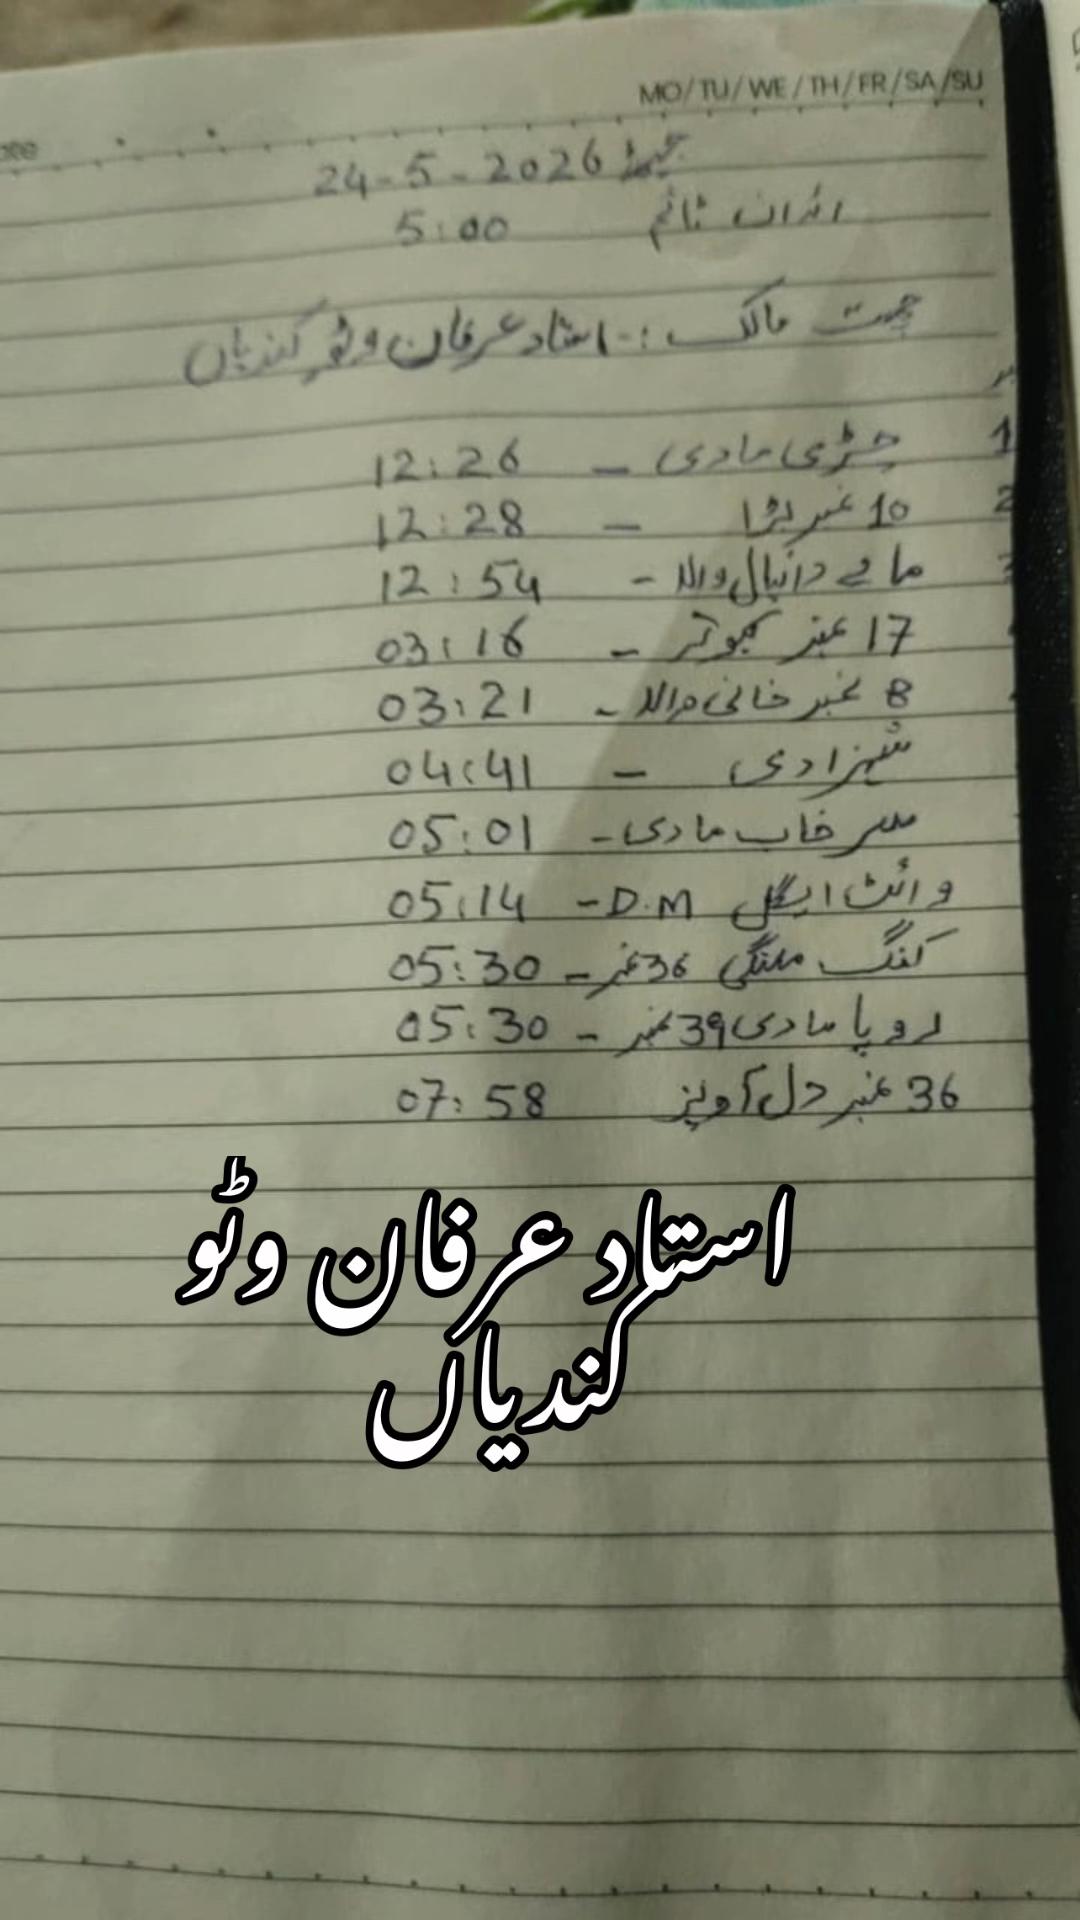 MO/TU/WE/TH/FR/SA/SU
جیٹھ 24-5-2026
اڑان ٹائم 5:00
چھت مالک :- استاد عرفان وٹو کندیاں
1 چڑی مادی - 12:26
2 10 نمبر بڑا - 12:28
3 مانے دانیال والا - 12:54
17 نمبر کبوتر - 03:16
8 نمبر خانی والا - 03:21
شہزادی - 04:41
سرخاب مادی - 05:01
وائٹ ایگل D.M - 05:14
کنگ ملنگی 36 نمبر - 05:30
روپا مادی 39 نمبر - 05:30
36 نمبر دل آویز 07:58
استاد عرفان وٹو
کندیاں